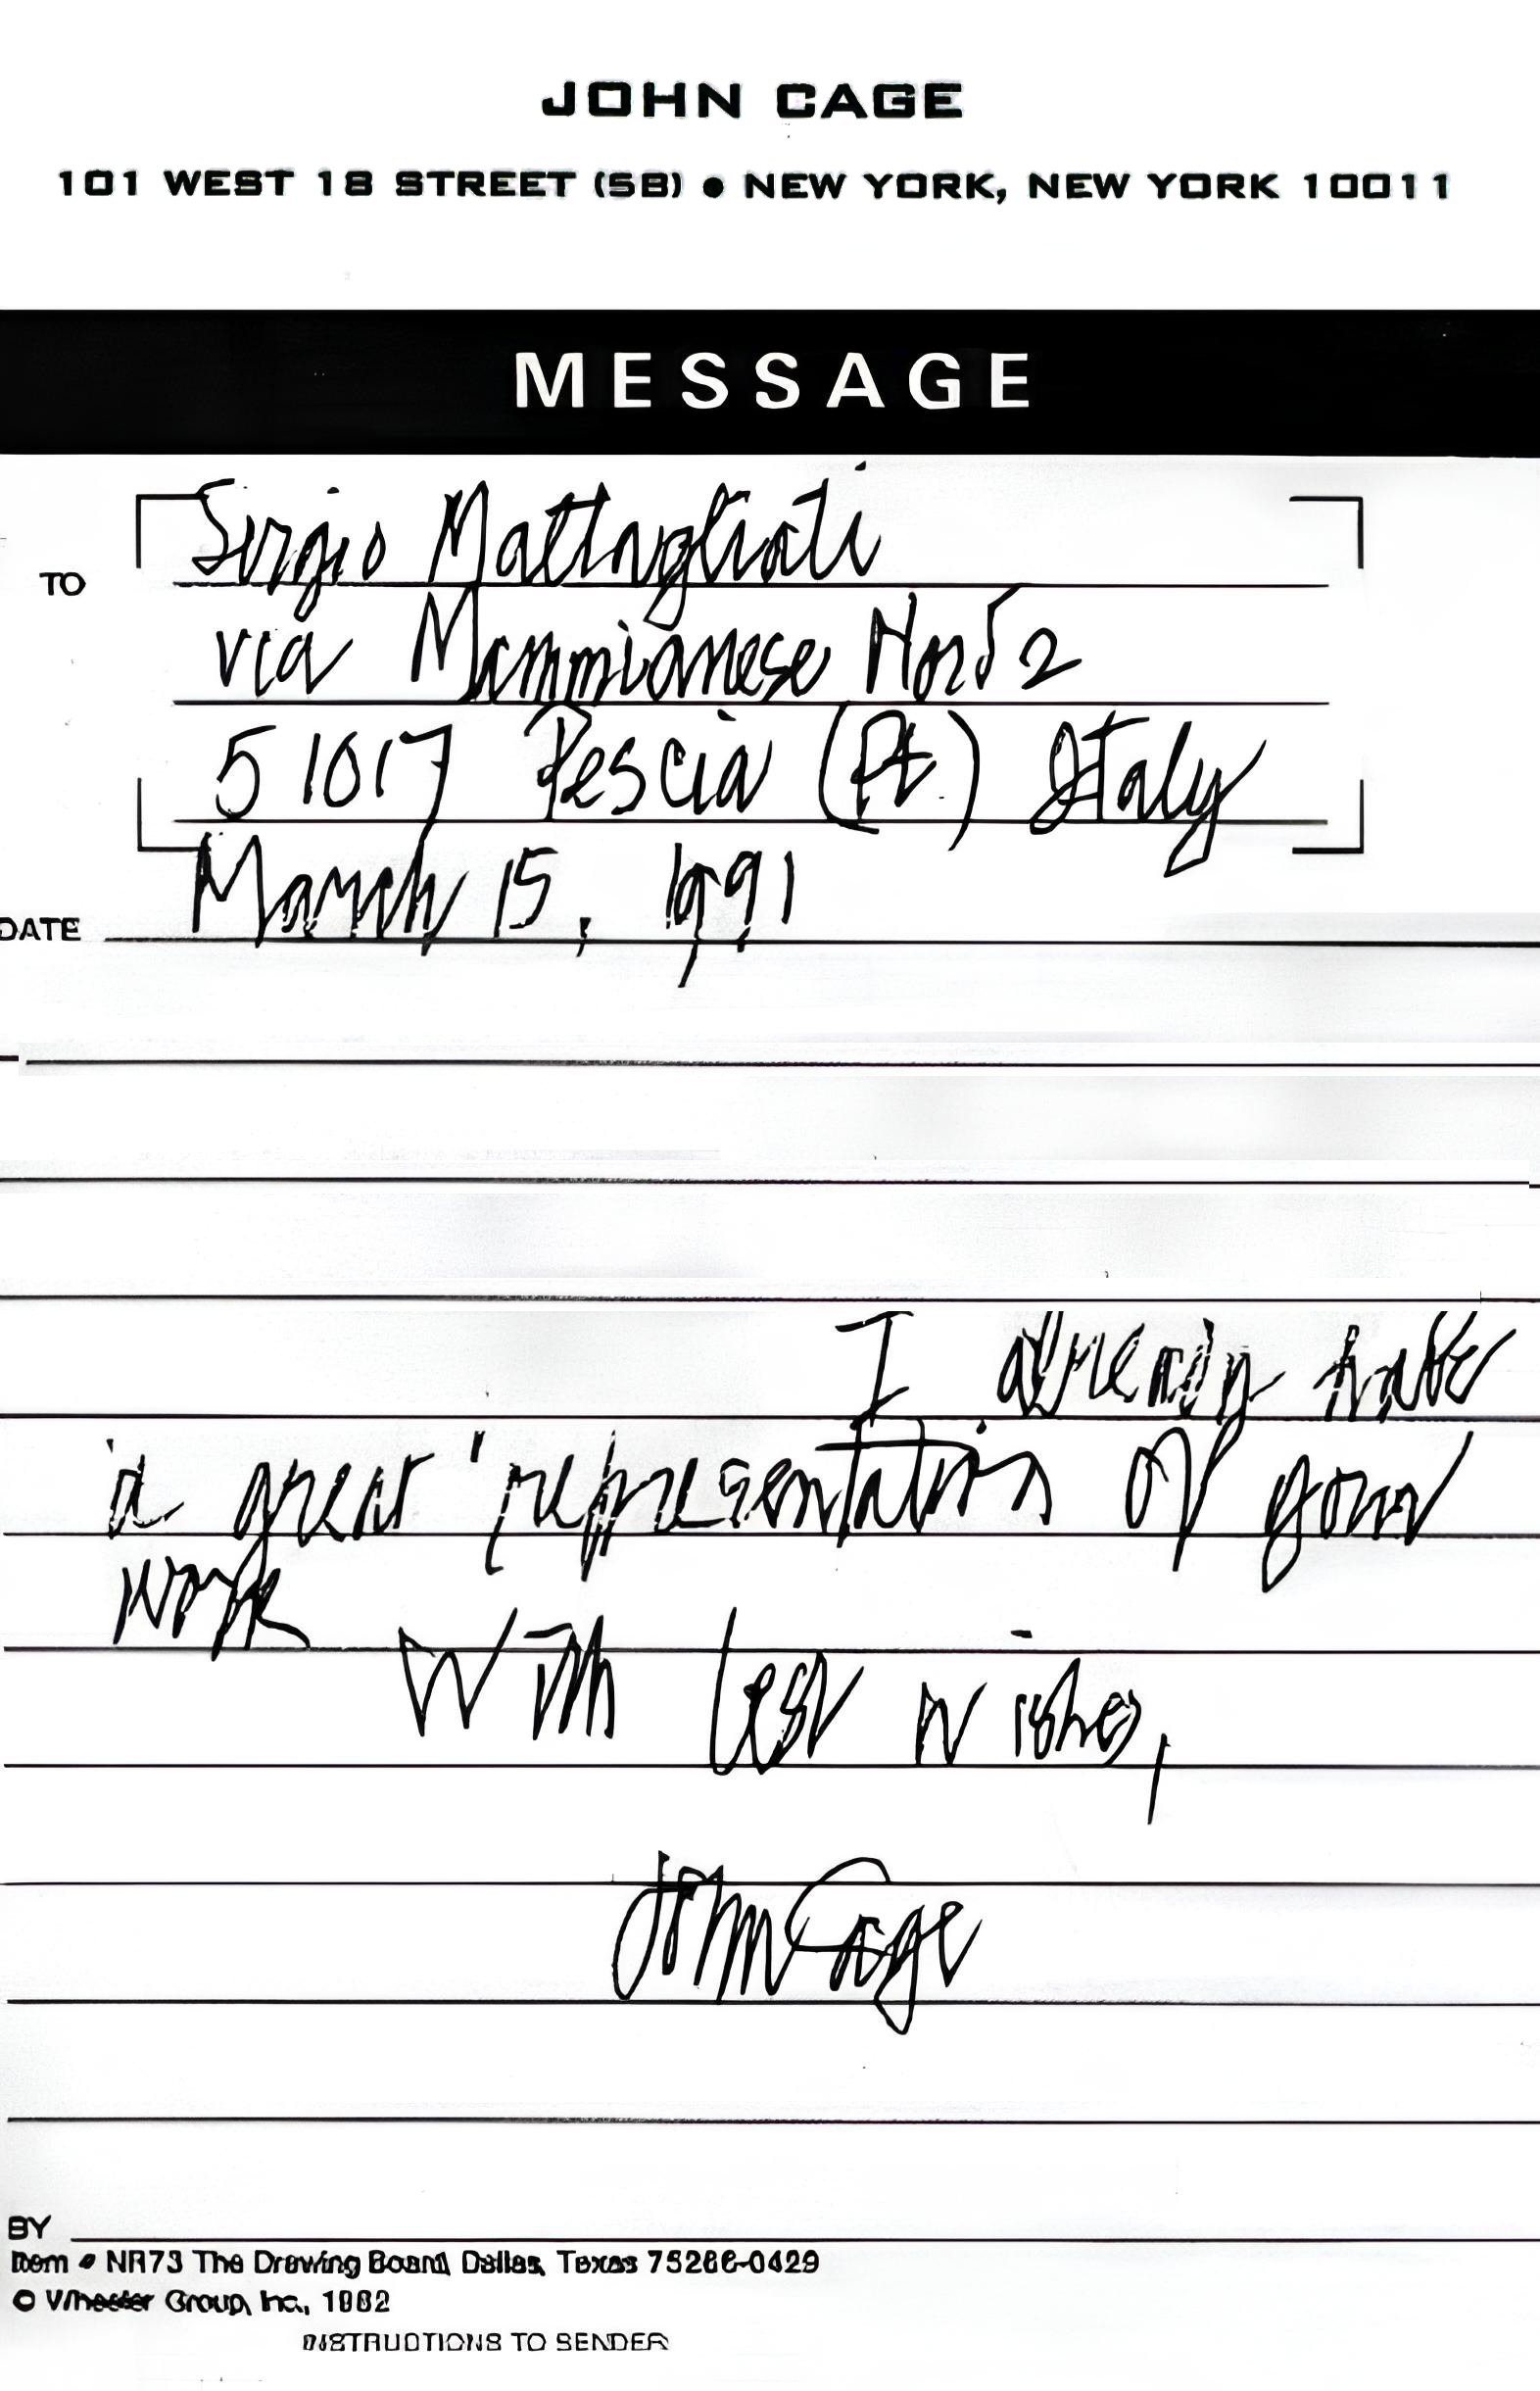 JOHN CAGE
101 WEST 18 STREET (5B) ● NEW YORK, NEW YORK 10011
MESSAGE
TO
Sergio Mattagliati
via Mammianese Nord 2
51017 Pescia (Pt.) Italy
DATE March 15, 1991
I already have
a great representation of your
work
With best wishes,
John Cage
BY
Item # NR73 The Drawing Board, Dallas, Texas 75266-0429
© Wheeler Group, Inc., 1982
INSTRUCTIONS TO SENDER